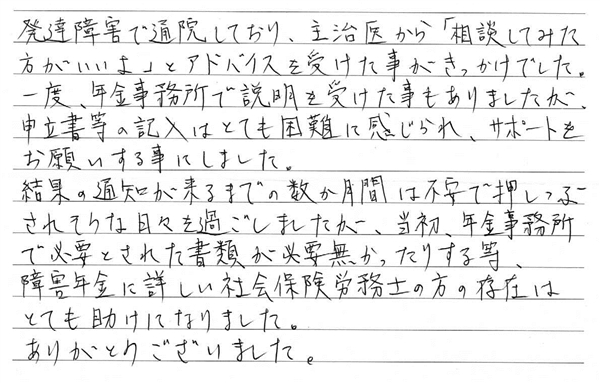 発達障害で通院しており、主治医から「相談してみた
方がいいよ」とアドバイスを受けた事がきっかけでした。
一度、年金事務所で説明を受けた事もありましたが、
申立書等の記入はとても困難に感じられ、サポートを
お願いする事にしました。
結果の通知が来るまでの数か月間は不安で押しつぶ
されそうな日々を過ごしましたが、当初、年金事務所
で必要とされた書類が必要無かったりする等、
障害年金に詳しい社会保険労務士の方の存在は
とても助けになりました。
ありがとうございました。